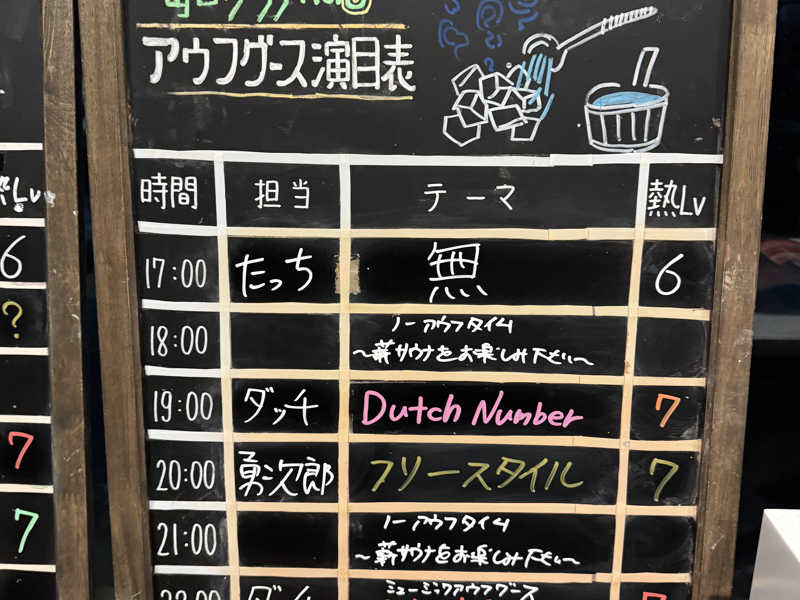 アウフグース演目表
時間 担当 テーマ 熱Lv
17:00 たっち 無 6
18:00 ノーアウフタイム
~薪サウナをお楽しみ下さい~
19:00 ダッチ Dutch Number 7
20:00 勇次郎 フリースタイル 7
21:00 ノーアウフタイム
~薪サウナをお楽しみ下さい~
ミュージックアウフグース
熱Lv
6
?
7
7